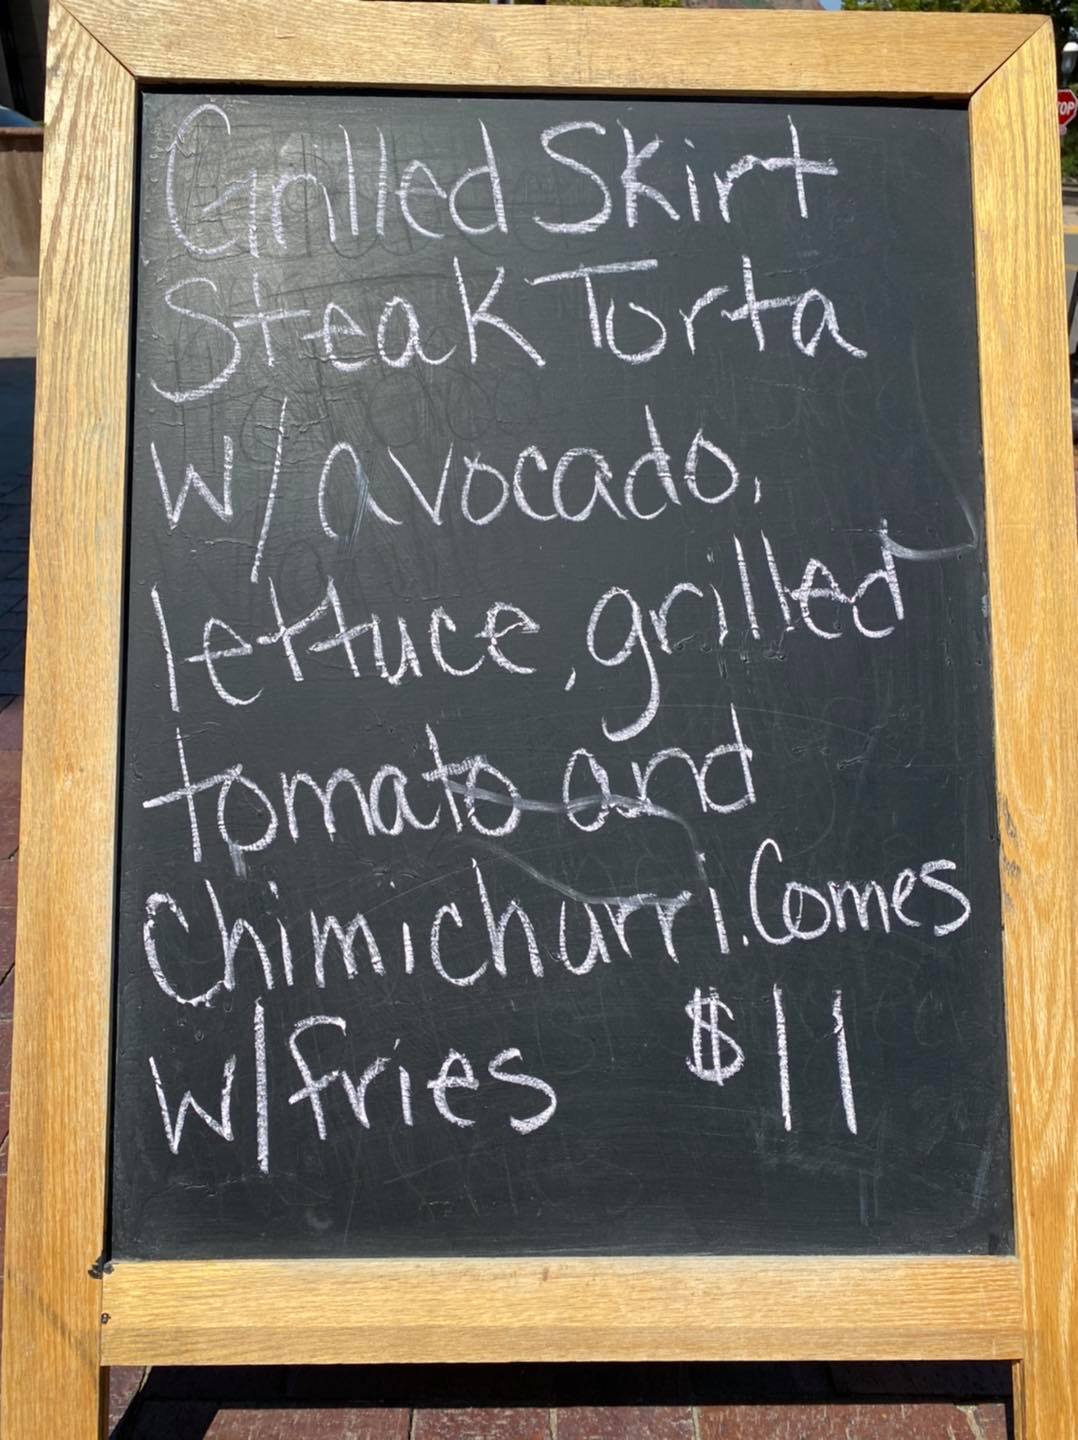 Grilled Skirt
Steak Torta
w/avocado,
lettuce, grilled
tomato and
Chimichurri. Comes
w/fries $11
OP